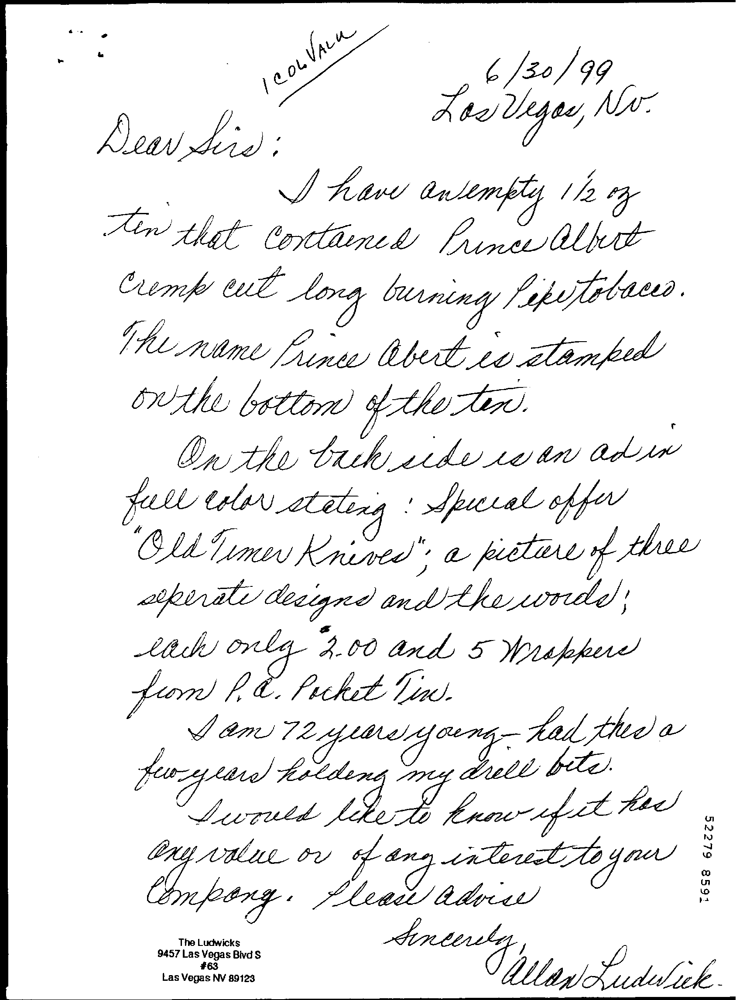 1 COL VALU
6/30/99
Las Vegas, Nv.
Dear Sirs:
I have an empty 1 1/2 oz
tin that contained Prince Albert
crimp cut long burning Pipe tobacco.
The name Prince Abert is stamped
on the bottom of the tin.
On the back side is an ad in
full color stating: Special offer
"Old Timer Knives"; a picture of three
seperate designs and the words;
each only $2.00 and 5 Wrappers
from P.A. Pocket Tin.
I am 72 years young - had this a
few years holding my drill bits.
I would like to know if it has
any value or of any interest to your
Company. Please advise
Sincerely,
Allan Ludwick.
The Ludwicks
9457 Las Vegas Blvd S
#63
Las Vegas NV 89123
52279 8591